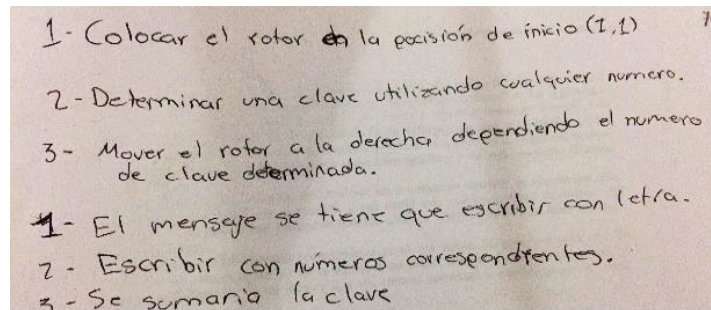 1- Colocar el rotor en la pocisión de inicio (1,1)
2- Determinar una clave utilizando cualquier numero.
3- Mover el rotor a la derecha dependiendo el numero
de clave determinada.
1- El mensaje se tiene que escribir con letra.
2- Escribir con números correspondientes.
3- Se sumaria la clave